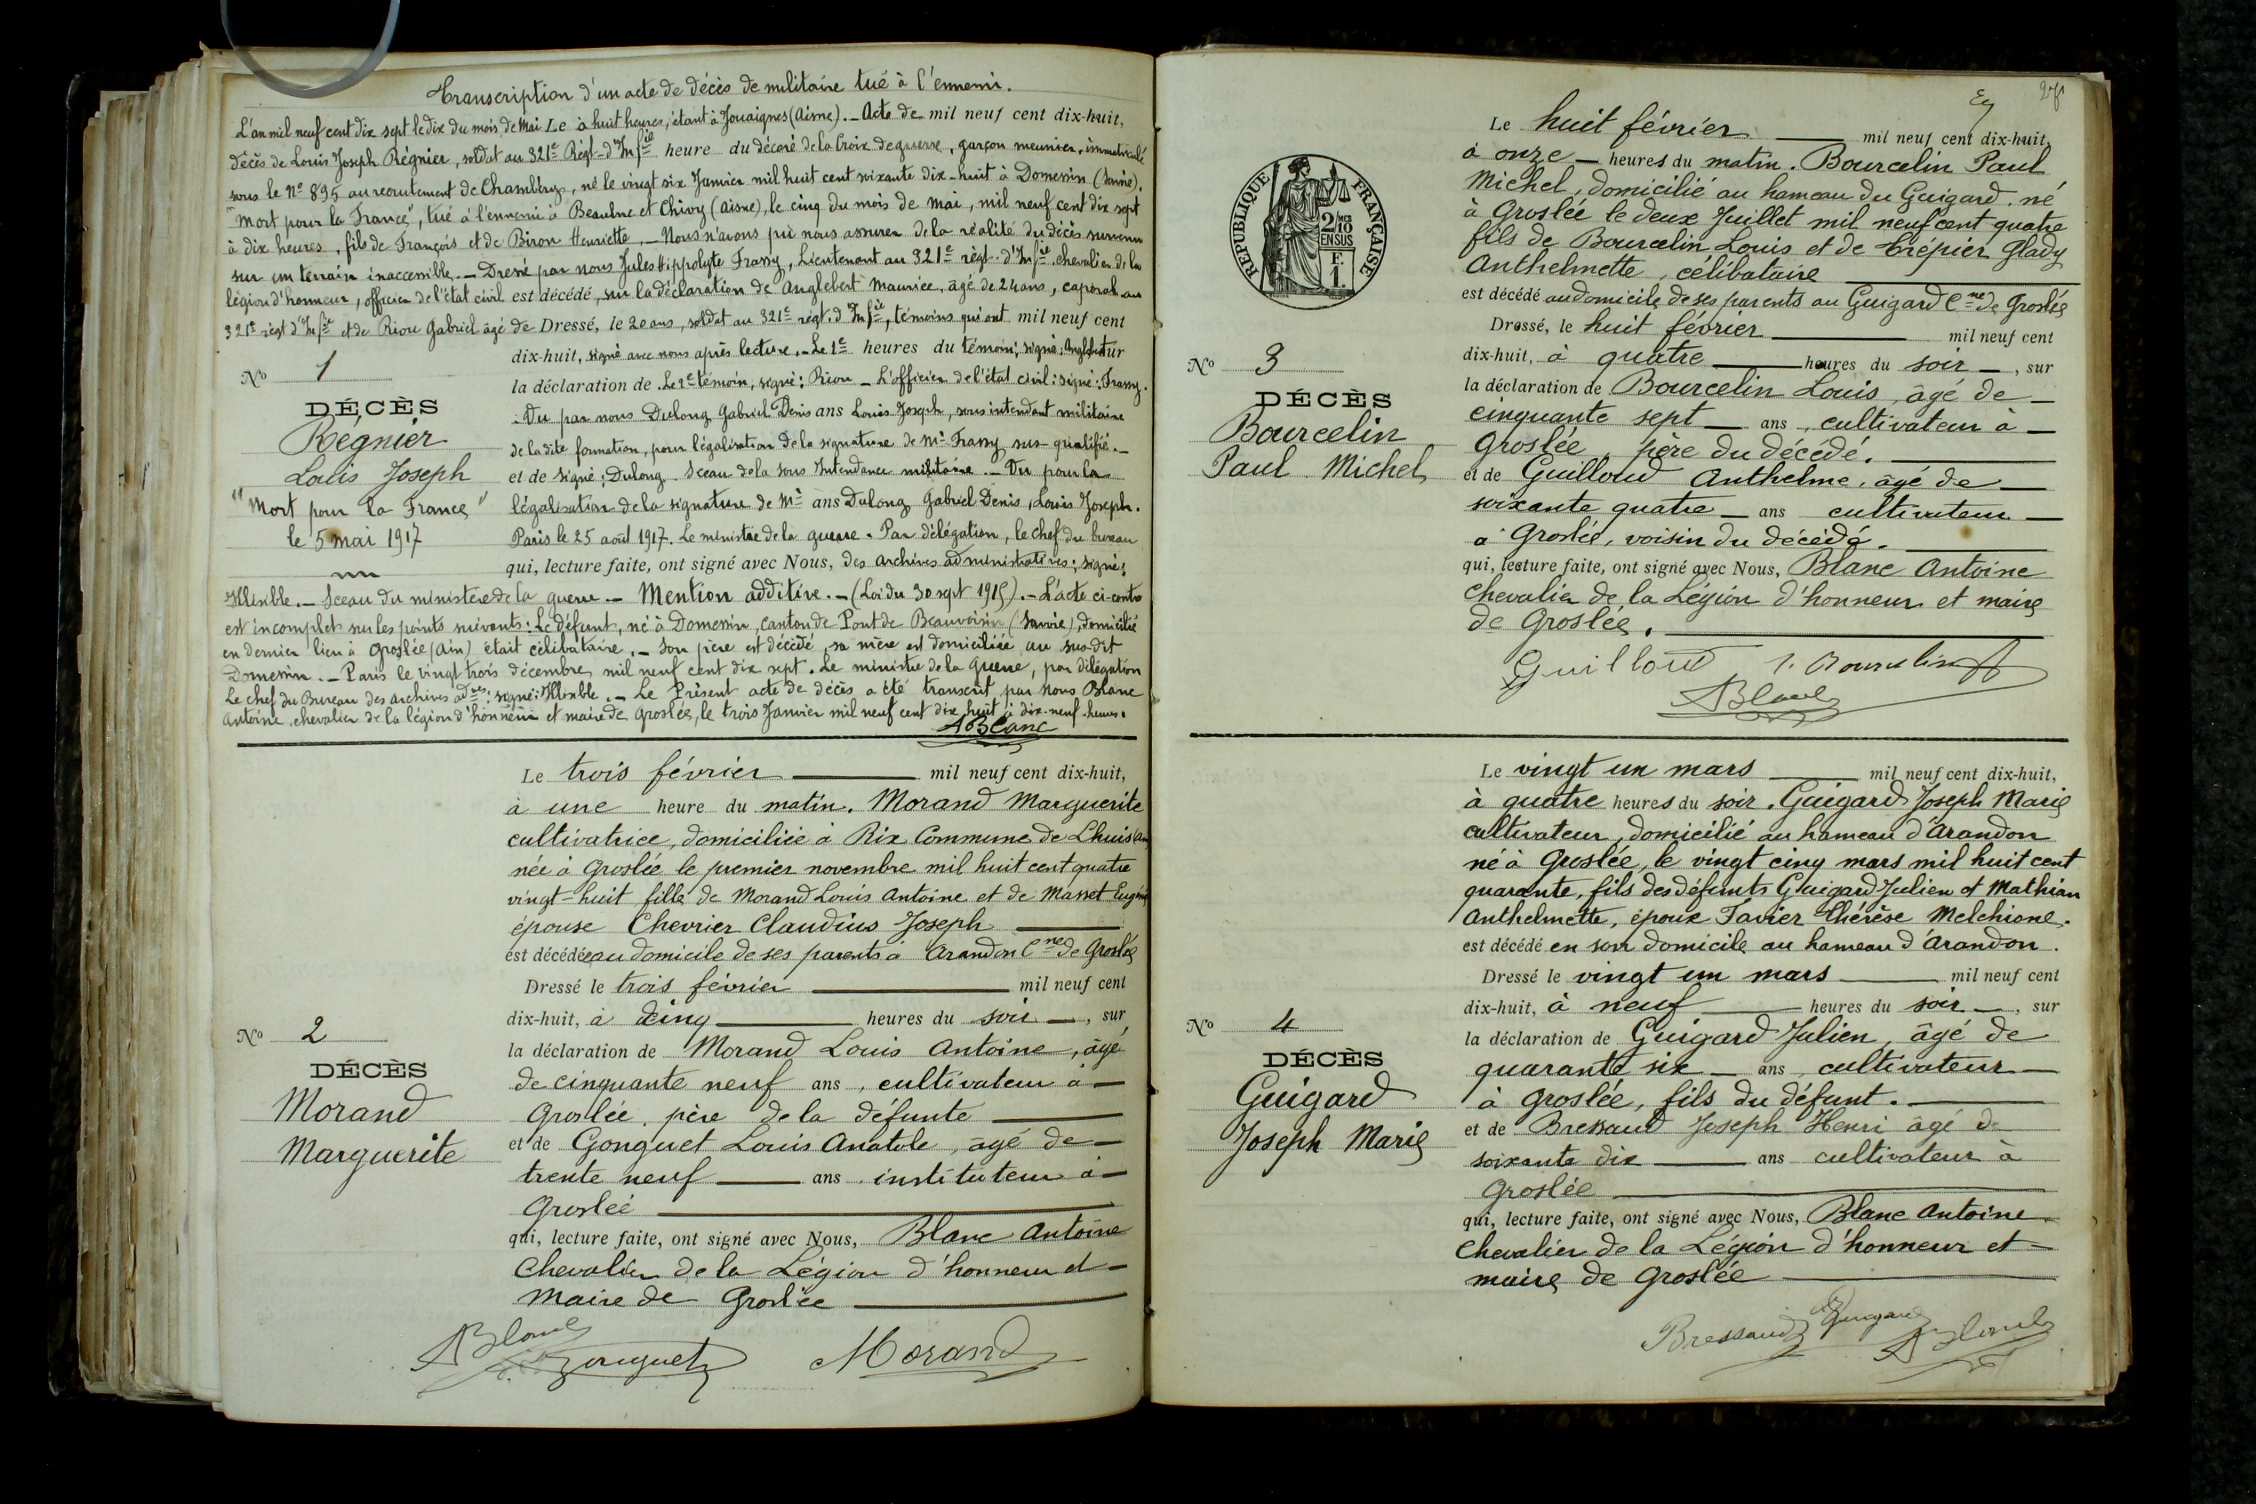 Transcription d'un acte de décès de militaire tué à l'ennemi.
L'an mil neuf cent dix sept le dix du mois de Mai Le à huit heures, étant à Jouaignes (Aisne). _ Acte de mil neuf cent dix-huit,
décès de Louis Joseph Régnier, soldat au 321e Régt d'Infie heure du décoré de la Croix de guerre, garçon meunier, immatriculé
sous le No 895 au recrutement de Chambéry, né le vingt six Janvier mil huit cent soixante dix-huit à Domessin (Savoie).
"Mort pour la France", tué à l'ennemi à Beaulne et Chivy (Aisne), le cinq du mois de Mai, mil neuf cent dix sept
à dix heures, fils de François et de Biron Henriette. _ Nous n'avons pu nous assurer de la réalité du décès survenu
sur un terrain inaccessible. _ Dressé par nous Jules Hippolyte Frassy, Lieutenant au 321e régt d'Infie chevalier de la
légion d'honneur, officier de l'état civil est décédé, sur la déclaration de Anglebert Maurice, âgé de 24 ans, caporal au
321e régt d'Infie et de Riou Gabriel âgé de Dressé, le 20 ans, soldat au 321e régt d'Infie, témoins qui ont mil neuf cent
dix-huit, signé avec nous après lecture. _ Le 1er heures du témoin; signé: Anglebert sur
la déclaration de Le 2e témoin, signé: Riou _ L'officier de l'état civil: signé: Frassy.
Vu par nous Dulong Gabriel Denis ans Louis Joseph, sous intendant militaire
de la dite formation, pour légalisation de la signature de Mr Frassy sus-qualifié. _
et de signé: Dulong. Sceau de la sous Intendance militaire. _ Vu pour la
légalisation de la signature de Mr ans Dulong Gabriel Denis, Louis Joseph.
Paris le 25 août 1917. Le ministre de la guerre. Par délégation, le chef du bureau
qui, lecture faite, ont signé avec Nous, des archives administratives: signé:
Illisible. _ Sceau du ministère de la guerre _ Mention additive. _ (Loi du 30 sept 1915). _ L'acte ci-contre
est incomplet sur les points suivants: Le défunt, né à Domessin, canton de Pont de Beauvoisin (Savoie), domicilié
en dernier lieu à Groslée (Ain) était célibataire. _ Son père est décédé, sa mère est domiciliée au sus-dit
Domessin. _ Paris le vingt trois décembre mil neuf cent dix sept. Le ministre de la Guerre, par délégation
Le chef du Bureau des archives adves: signé: Illisible. _ Le Présent acte de décès a été transcrit par nous Blanc
Antoine, chevalier de la légion d'honneur et maire de Groslée, le trois Janvier mil neuf cent dix huit à dix-neuf heures.
ABlanc
No 1
DÉCÈS
Régnier
Louis Joseph
"Mort pour la France"
le 5 mai 1917
Le trois février mil neuf cent dix-huit,
à une heure du matin. Morand Marguerite
cultivatrice, domiciliée à Rix Commune de Lhuis (Ain
née à Groslée le premier novembre mil huit cent quatre
vingt-huit fille de Morand Louis Antoine et de Masset Eugénie
épouse Chevrier Claudius Joseph
est décédée au domicile de ses parents à Arandon Cne de Groslée
Dressé le trois février mil neuf cent
dix-huit, à cinq heures du soir, sur
la déclaration de Morand Louis Antoine, âgé
de cinquante neuf ans, cultivateur à
Groslée, père de la défunte
et de Gonguet Louis Anatole, âgé de
trente neuf ans instituteur à
Groslée
qui, lecture faite, ont signé avec Nous, Blanc Antoine
Chevalier de la Légion d'honneur et
Maire de Groslée
No 2
DÉCÈS
Morand
Marguerite
ABlanc
Gonguet Morand
27
RÉPUBLIQUE FRANÇAISE
2/10
EN SUS
F.
1.
Le huit février mil neuf cent dix-huit,
à onze heures du matin. Bourcelin Paul
Michel, domicilié au hameau du Guigard, né
à Groslée le deux Juillet mil neuf cent quatre
fils de Bourcelin Louis et de Crépier Glady
Anthelmette, célibataire
est décédé au domicile de ses parents au Guigard Cne de Groslée
Dressé, le huit février mil neuf cent
dix-huit, à quatre heures du soir, sur
la déclaration de Bourcelin Louis, âgé de
cinquante sept ans, cultivateur à
Groslée, père du décédé.
et de Guilloud Anthelme, âgé de
soixante quatre ans cultivateur
à Groslée, voisin du décédé.
qui, lecture faite, ont signé avec Nous, Blanc Antoine
Chevalier de la Légion d'honneur et maire
de Groslée.
No 3
DÉCÈS
Bourcelin
Paul Michel
Guilloud L. Bourcelin
ABlanc
Le vingt un mars mil neuf cent dix-huit,
à quatre heures du soir. Guigard Joseph Marie
cultivateur, domicilié au hameau d'Arandon
né à Groslée, le vingt cinq mars mil huit cent
quarante, fils des défunts Guigard Julien et Mathian
Anthelmette, époux Favier Thérèse Melchione.
est décédé en son domicile au hameau d'Arandon.
Dressé le vingt un mars mil neuf cent
dix-huit, à neuf heures du soir, sur
la déclaration de Guigard Julien, âgé de
quarante six ans, cultivateur
à Groslée, fils du défunt.
et de Bressaud Joseph Henri âgé de
soixante dix ans cultivateur à
Groslée
qui, lecture faite, ont signé avec Nous, Blanc Antoine
Chevalier de la Légion d'honneur et
maire de Groslée
No 4
DÉCÈS
Guigard
Joseph Marie
Bressaud Guigard ABlanc